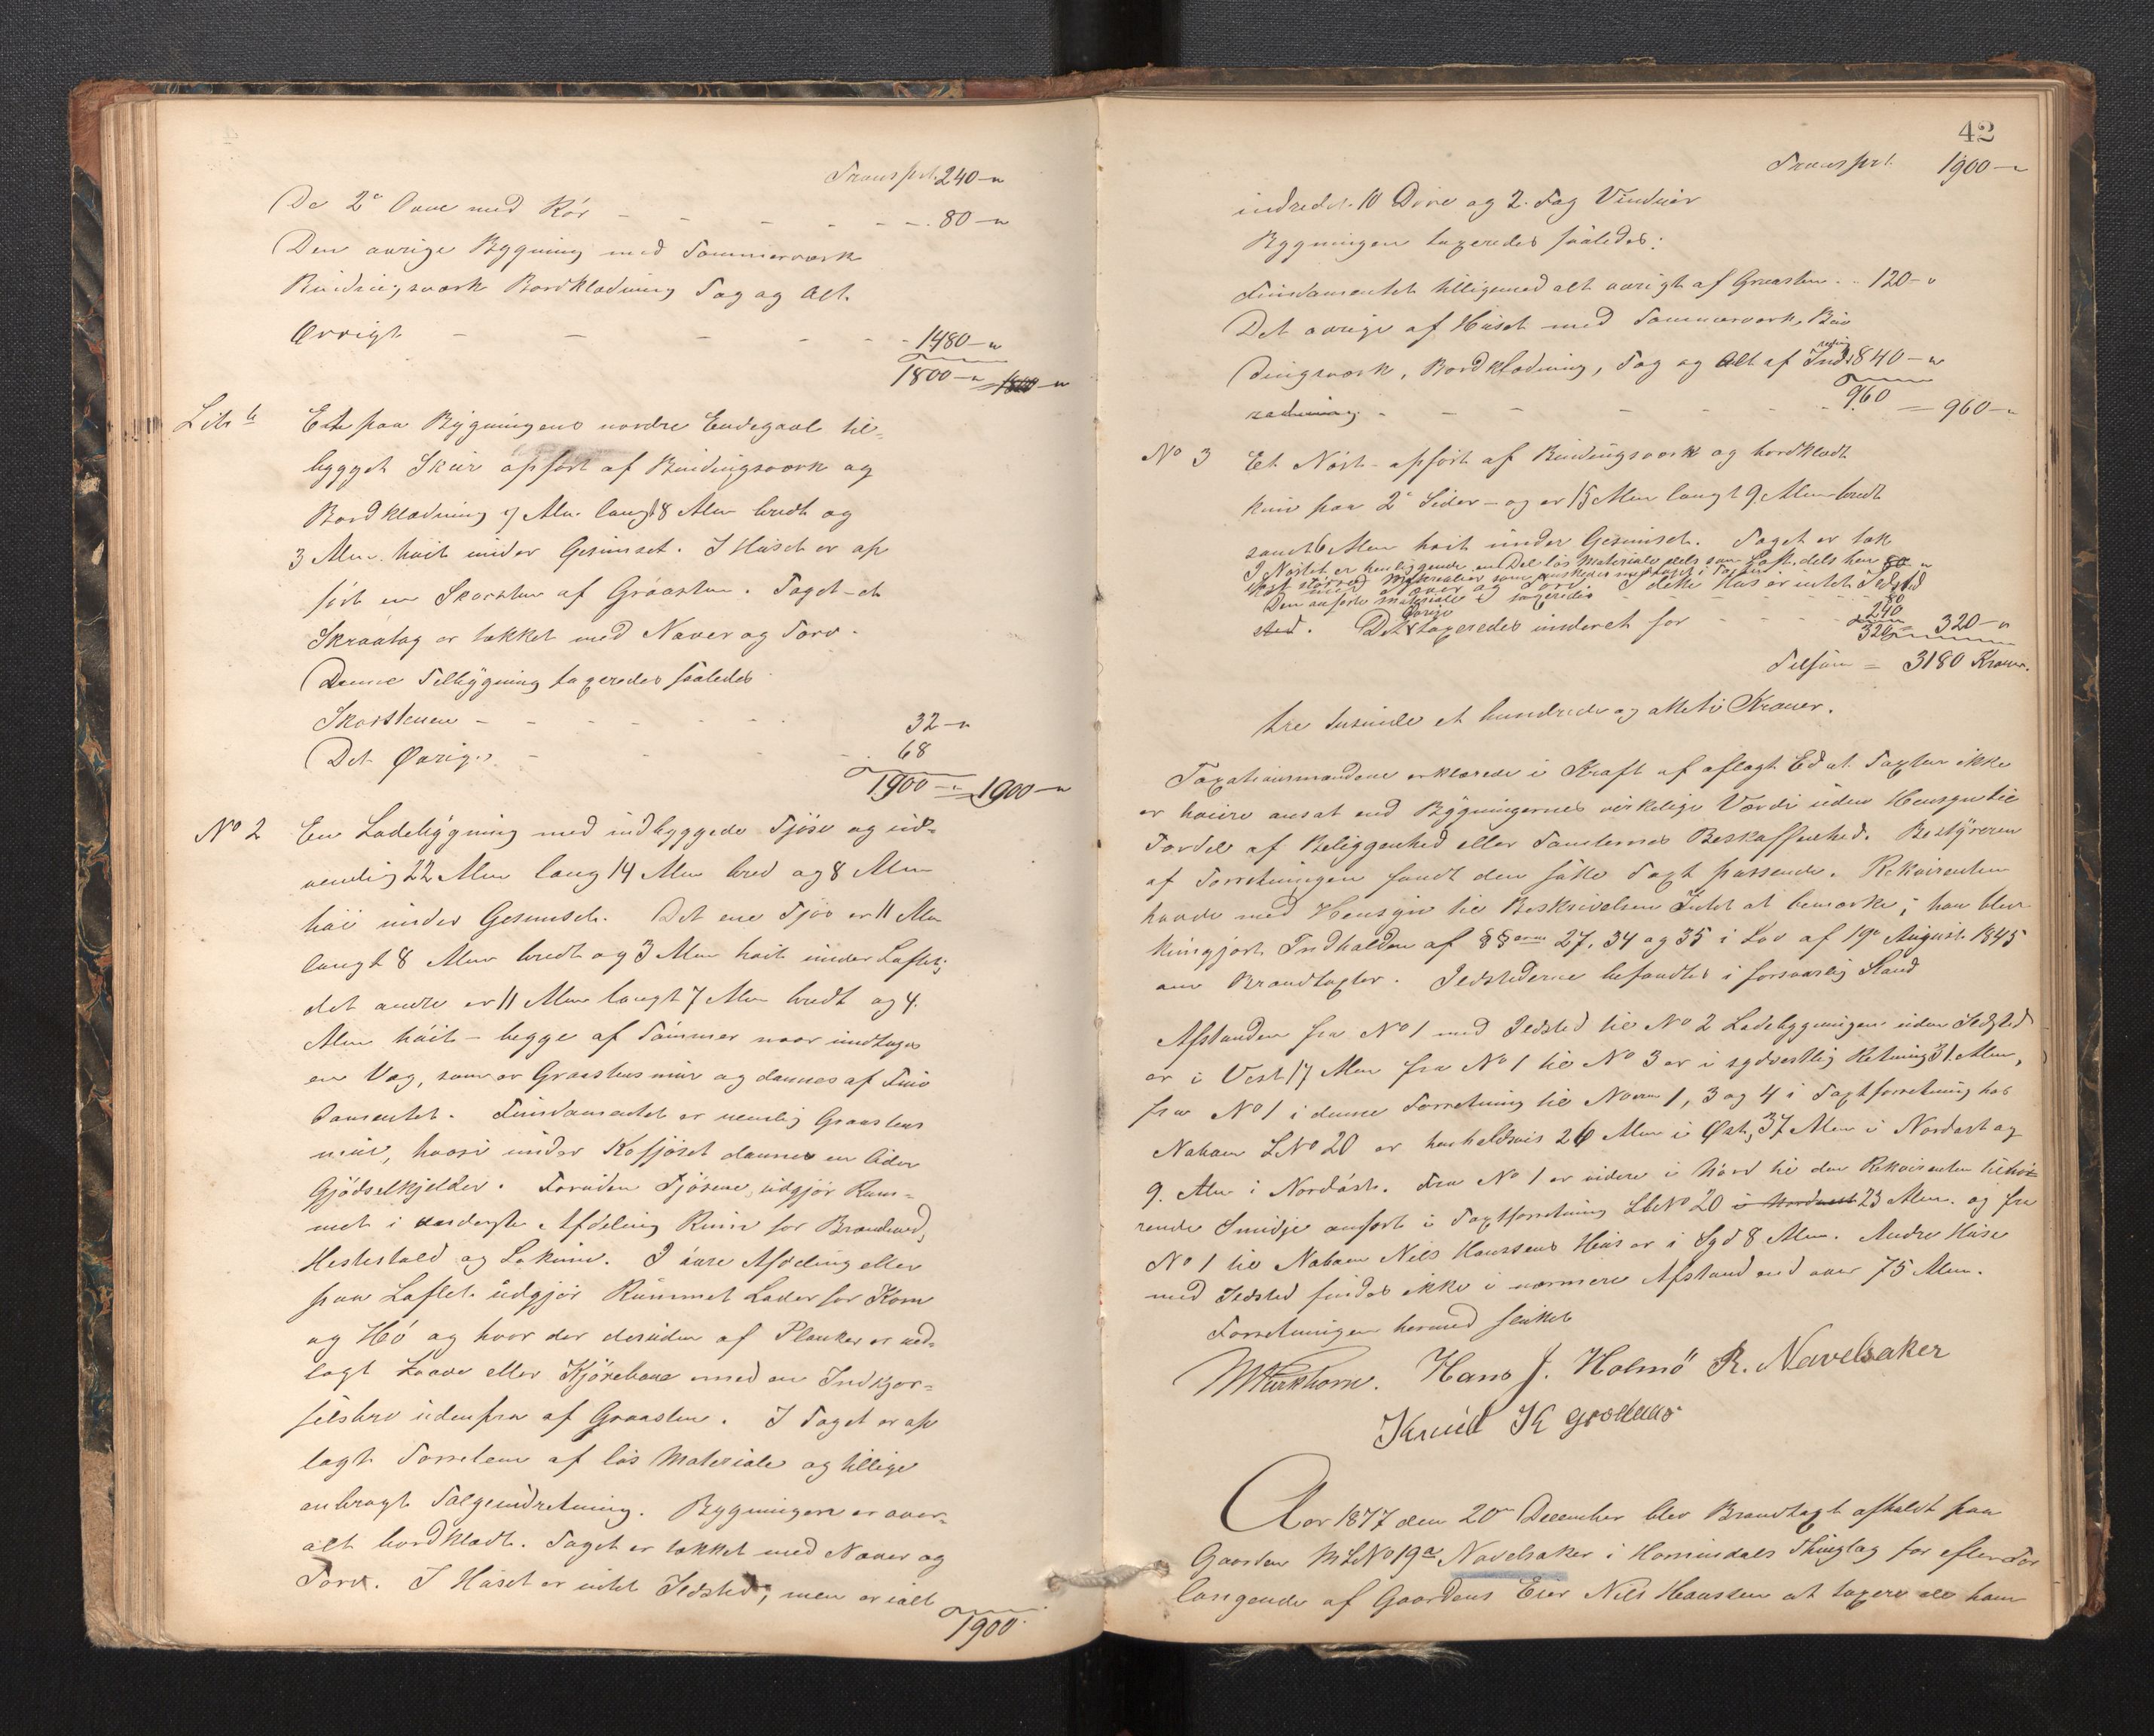 Transport. 240 – "
De 2de Ovne med Rör – – – – – – 80 – "
Den øvrige Bygning med Tømmerværk
Bindingsværk Bordklædning Tag og Alt
Øvrigt – – – – – 1480 – "
1800 – " 1800 – "
Litr b Et paa Bygningens nordre Endegavl til-
bygget Skur opført af Bindingsværk og
Bordklædning 7 Alen langt 8 Alen bredt og
3 Alen høit under Gesimset. I Huset er op
ført en Skorsten af Graasten. Taget – et
Skraatag er tækket med Næver og Torv.
Denne Tilbygning taxeredes saaledes
Skorstenen – – – – – – 32 – "
Det Øvrige – – – – 68
1900 – " = 1900 – "
No 2 En Ladebygning med indbyggede Fjöse og ud-
vendig 22 Alen lang 14 Alen bred og 8 Alen
høi under Gesimset. Det ene Fjös er 11 Alen
langt 8 Alen bredt og 3 Alen høit under Loftet;
det andre er 11 Alen langt 7 Alen bredt og 4
Alen høit – begge af Tømmer naar undtages
en Væg, som er Graastens mur og dannes af Fun
damentet. Fundamentet er nemlig Graastens
mur, hvori under Kofjöset dannes en liden
Gjödselkjelder. Foruden Fjösene, udgjör Rum-
met i nederste Afdeling Rum for Brændeved,
Hestestald og Lokum. I övre Afdeling eller
paa Loftet udgjör Rummet Lader for Korn
og Hö og hvor der desuden af Planker er ned-
lagt Laave eller Kjörebane med en Indkjør-
selsbro udenfra af Graasten. I Taget er op
lagt Torvelem af lös Materiale og tillige
anbragt Talgeindretning. Bygningen er over-
alt bordklædt. Taget er tækket med Næver og
Torv. I Huset er intet Ildsted; men er ialt
1900

42
Transport. 1900 – "
indredet 10 Döre og 2 Fag Vinduer
Bygningen taxeredes saaledes:
Fundamentet tilligemed alt øvrigt af Graasten . . 120 – "
Det øvrige af Huset med Tømmerværk, Bin
dingsværk, Bordklædning, Tag og Alt af Indredning 840 – "
redning – – – – – – 960 = 960 – "
No 3 Et Nöst – opført af Bindingsværk og bordklædt
kun paa 2de Sider – og er 15 Alen langt 9 Alen bredt
samt 6 Alen høit under Gesimset. Taget er tæk
I Nöstet er henliggende en Del lös Materiale dels som Loft, dels hen 80 "
ket med Næver og Torv. I dette Hus er intet Ildsted
Den anførte Materiale taxeredes – – – – 80
sted. Det Øvrige taxeredes underet for – – – 240
320 = 320 – "
Tilsum = 3180 Kroner.
tre tusinde et hundrede og otteti Kroner.
Taxationsmændene erklærede i Kraft af aflagt Ed at Taxten ikke
er høiere ansat end Bygningernes virkelige Værdi uden Hensyn til
Fordel af Beliggenhed eller Tomternes Beskaffenhed. Bestyreren
af Forretningen fandt den satte Taxt passende. Rekvirenten
havde med Hensyn til Beskrivelsen Intet at bemærke; han blev
kungjort Indholden af §§erne 27, 34 og 35 i Lov af 19de August 1845
om Brandtaxter. Ildstederne befandtes i forsvarlig Stand
Afstanden fra No 1 med Ildsted til No 2 Ladebygningen uden Ildsted
er i Vest 17 Alen fra No 1 til No 3 er i sydvestlig Retning 31 Alen,
fra No 1 i denne Forretning til Noerne 1, 3 og 4 i Taxtforretning hos
Naboen LNo 20 er henholdsvis 26 Alen i Øst, 37 Alen i Nordost og
9. Alen i Nordöst. Fra No 1 er videre i Nord til den Rekvirenten tilhö-
rende Smidje anført i Taxtforretning LbNo 20 i Nordvest 23 Alen. og fra
No 1 til Naboen Nils Hanssens Hus er i Syd 8 Alen. Andre Huse
med Ildsted findes ikke i nærmere Afstand end over 75 Alen.
Forretningen hermed sluttet
Hans J. Holmö R. Navelsaker
Knud K
Aar 1877 den 20de December blev Brandtaxt afholdt paa
Gaarden MLNo 19a Navelsaker i Hornindals Thinglag for efter For
langende af Gaardens Eier Nils Hanssen at taxere de ham